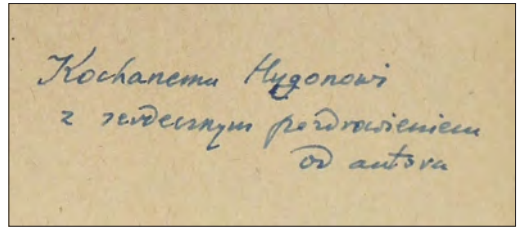 Kochanemu Hygonowi
z serdecznym pozdrowieniem
od autora